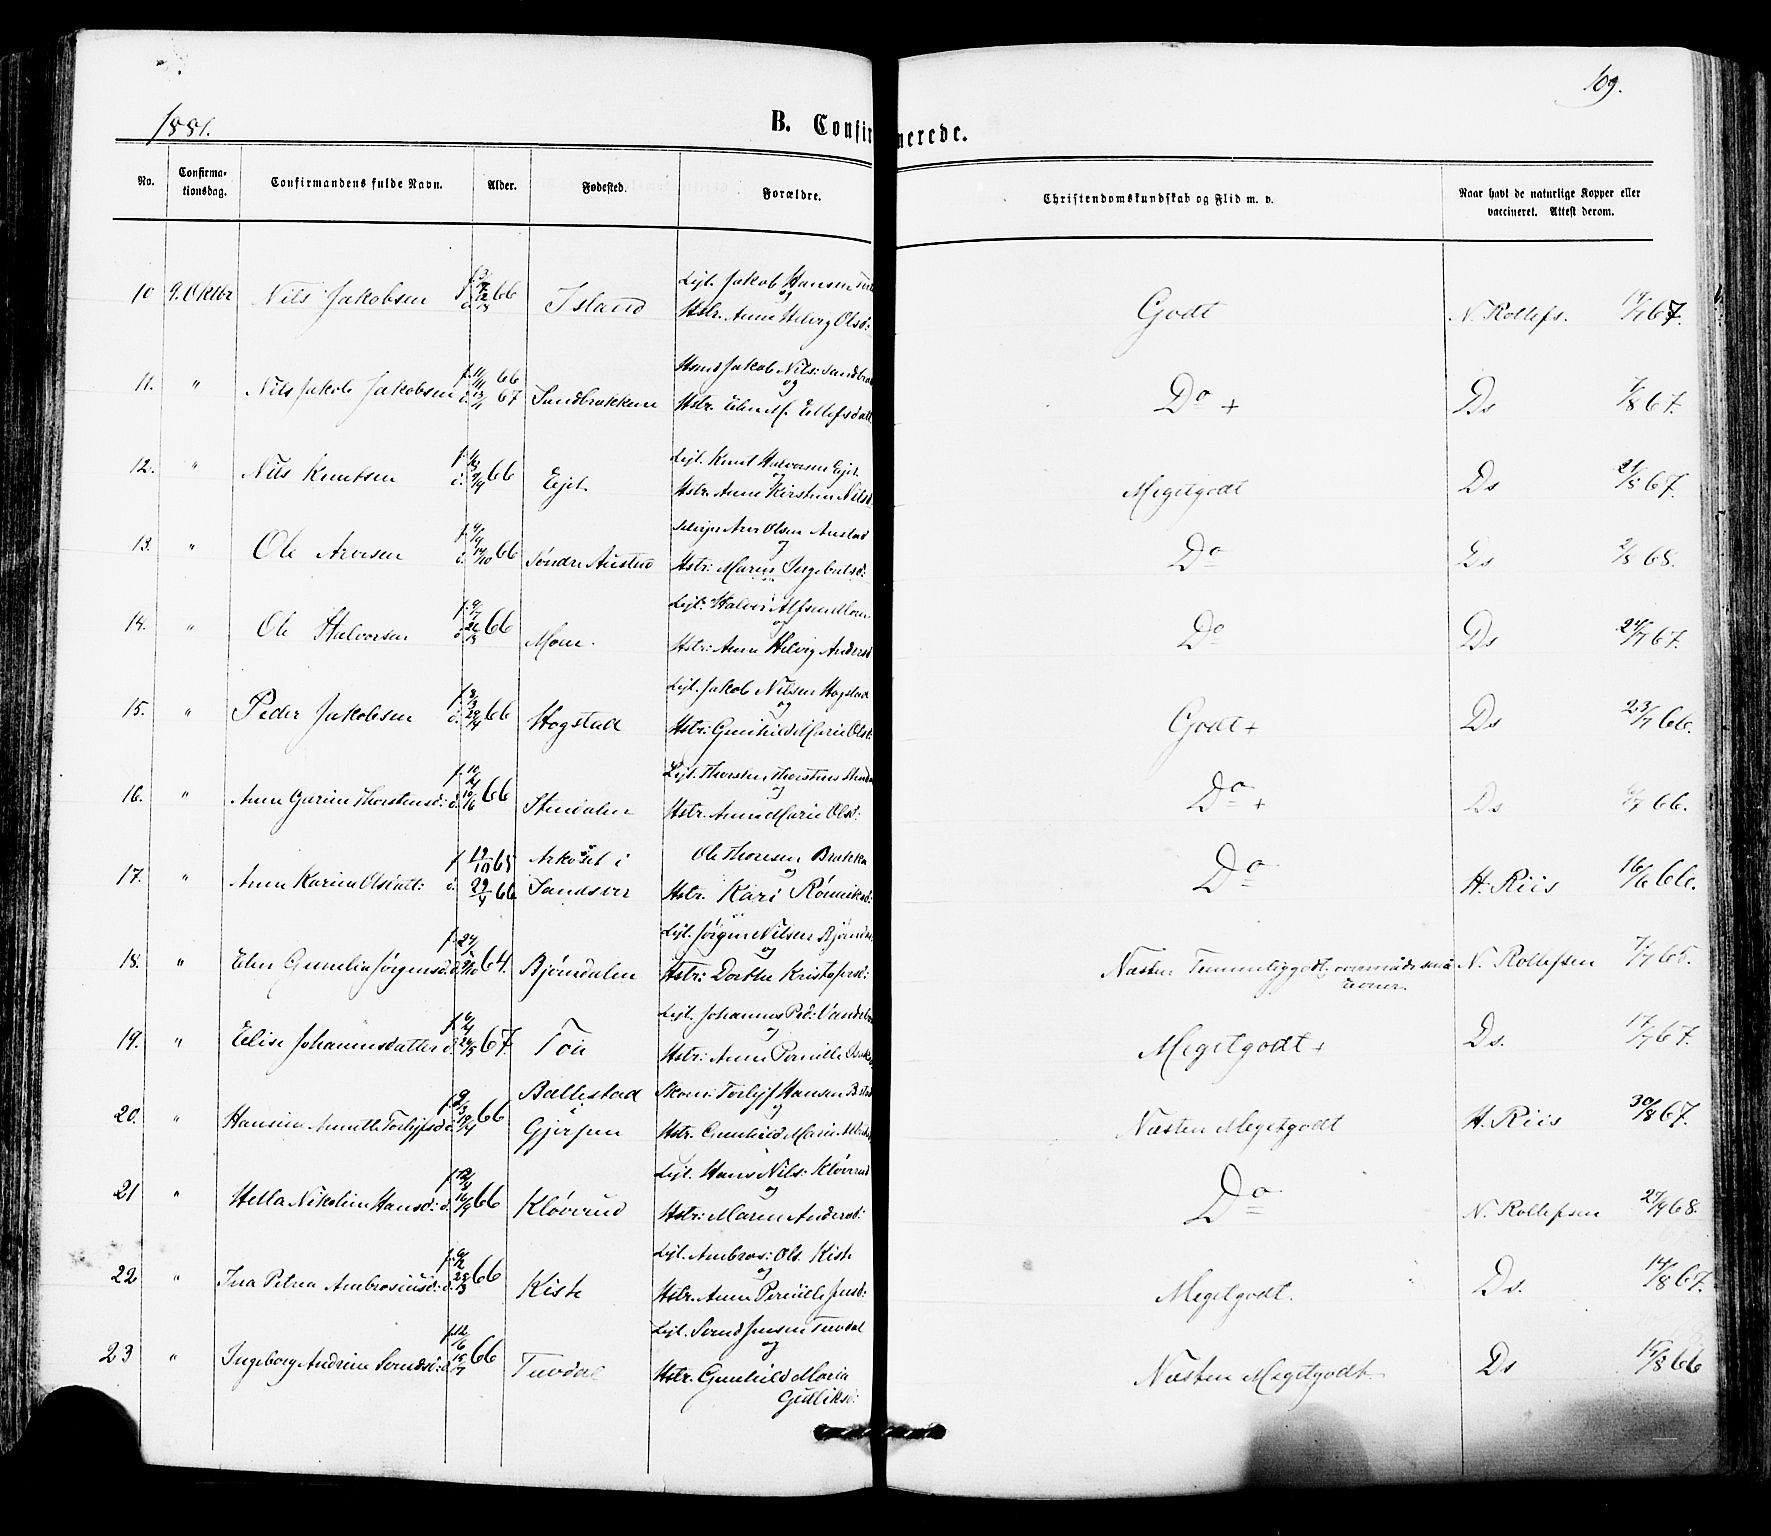 1881.
109.
B. Confirmerede.
No.
Confirma-
tionsdag.
Confirmandens fulde Navn.
Alder.
Fødested.
Forældre.
Christendomskundskab og Flid m. v.
Naar havt de naturlige Kopper eller
vaccineret. Attest derom.
10 9. Oktbr Nils Jakobsen 66 Island Lejl. Jakob Hansen
og
Hstr. Anne Helvig Olsd: Godt N. Rollefs. 67.
11. " Nils Jakob Jakobsen f. 11/11 66 d. 13/1 67 Sandbækken Jakob Nils: Sandbæk
og
Hstr. Elen M. Ellefsdatt Do + Ds 7/8 67.
12. " Nils Knutsen 66 Ejet Lejl. Knut Halvorsen Ejet
og
Hstr. Anne Kirstine Nilsd Megetgodt Ds 21/8 67.
13. " Ole Arvesen 66 Søndre Austad Selvejer Arve Olsen Austad
og
Hstr: Maren Ingebretsd: Do Ds 2/8 68.
14. " Ole Halvorsen 66 Moen. Lejl: Halvor Alfsen Moen
og
Hstr: Anne Helvig Andersd Do Ds 24/7 67.
15. " Peder Jakobsen 66 Hogstad Lejl. Jakob Nilsen Hogstad
og
Hstr: Gunhild Marie Olsd: Godt + Ds 23/7 66.
16. " Anne Gurine Thorstensd: 66 Stendalen Lejl. Thorsten Thorstens Stendal
og
Hstr. Anne Marie Olsd: Do + Ds 66.
17. " Anne Karine Olsdatt: f. 29/10 65 d. 29/4 66 i
Sandsver Ole Thoresen Brekke
og
Hstr. Kari Do H. Riis 16/6 66.
18. " Elen Gunelie Jørgensd: 64. Bjørndalen Lejl. Jørgen Nilsen
og
Hstr: Dorthe Kristofersd: Næsten Temmeliggodt, overmaade smaa
evner. N. Rollefsen 7/7 65.
19. " Elise Johannesdatter 67. Toen Lejl. Johannes Ped:
og
Hstr: Anne Pernille Megetgodt + Ds. 17/7 67.
20. " Hansine Annette Torlejfsd: 66 Ballestad
i
Gjerpen Skom: Torlejf Hansen
og
Hstr. Gunhild Marie Næsten Megetgodt H. Riis 30/8 67.
21 " Hella Nikoline Hansd: 66 Kløverud Lejl. Hans Nils: Kløverud
og
Hstr: Maren Andersd: Do N. Rollefsen 27/9 68.
22 " Ina Petrea Ambrosiusd: 66 Kiste Lejl. Ambros: Ols. Kiste
og
Hstr. Anne Pernille Jensd: Megetgodt. Ds. 14/8 67.
23 " Ingeborg Andrine Svendsd: 66 Tuvdal Lejl. Svend Jensen Tuvdal
og
Hstr. Gunhild Maria
Gulliksd: Næsten Megetgodt Ds 15/8 66